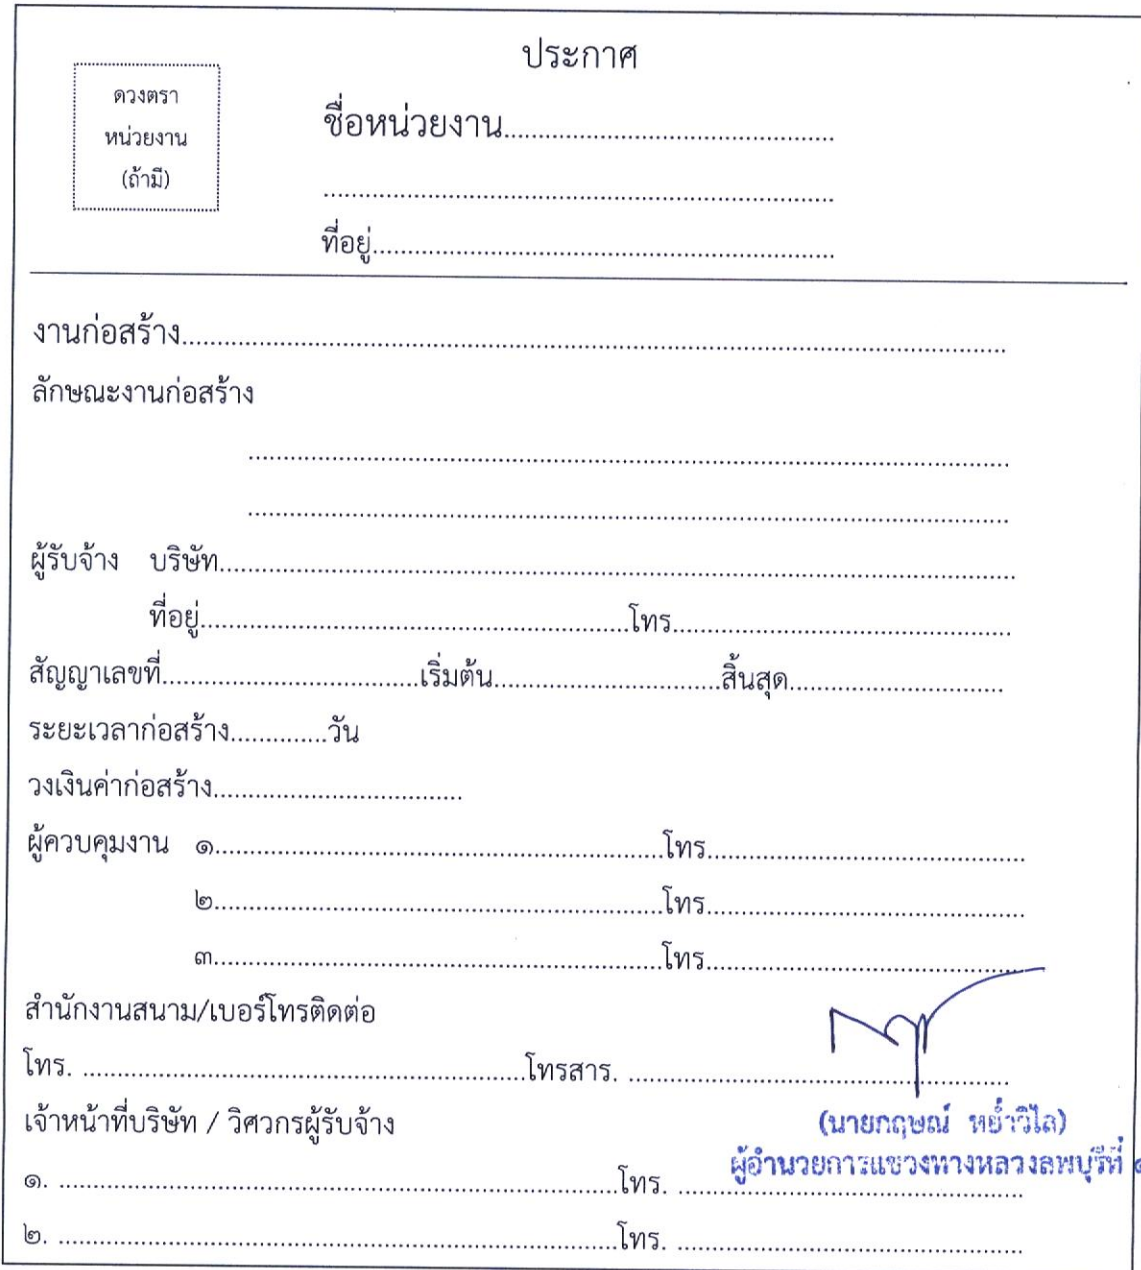 ประกาศ
ดวงตรา
หน่วยงาน
(ถ้ามี)
ชื่อหน่วยงาน..............................................
........................................................................
ที่อยู่.................................................................
งานก่อสร้าง....................................................................................................................
ลักษณะงานก่อสร้าง
...........................................................................................................
...........................................................................................................
ผู้รับจ้าง บริษัท................................................................................................................
ที่อยู่.............................................................โทร................................................
สัญญาเลขที่.....................................เริ่มต้น................................สิ้นสุด..............................
ระยะเวลาก่อสร้าง..............วัน
วงเงินค่าก่อสร้าง...................................
ผู้ควบคุมงาน ๑...............................................................โทร.............................................
๒...............................................................โทร.............................................
๓...............................................................โทร.............................................
สำนักงานสนาม/เบอร์โทรติดต่อ
โทร. ...............................................................โทรสาร. ......................................................
เจ้าหน้าที่บริษัท / วิศวกรผู้รับจ้าง
(นายกฤษณ์ หย้ำวิไล)
ผู้อำนวยการแขวงทางหลวงลพบุรีที่ ๑
๑. ...............................................................................โทร. ................................................
๒. ...............................................................................โทร. ................................................